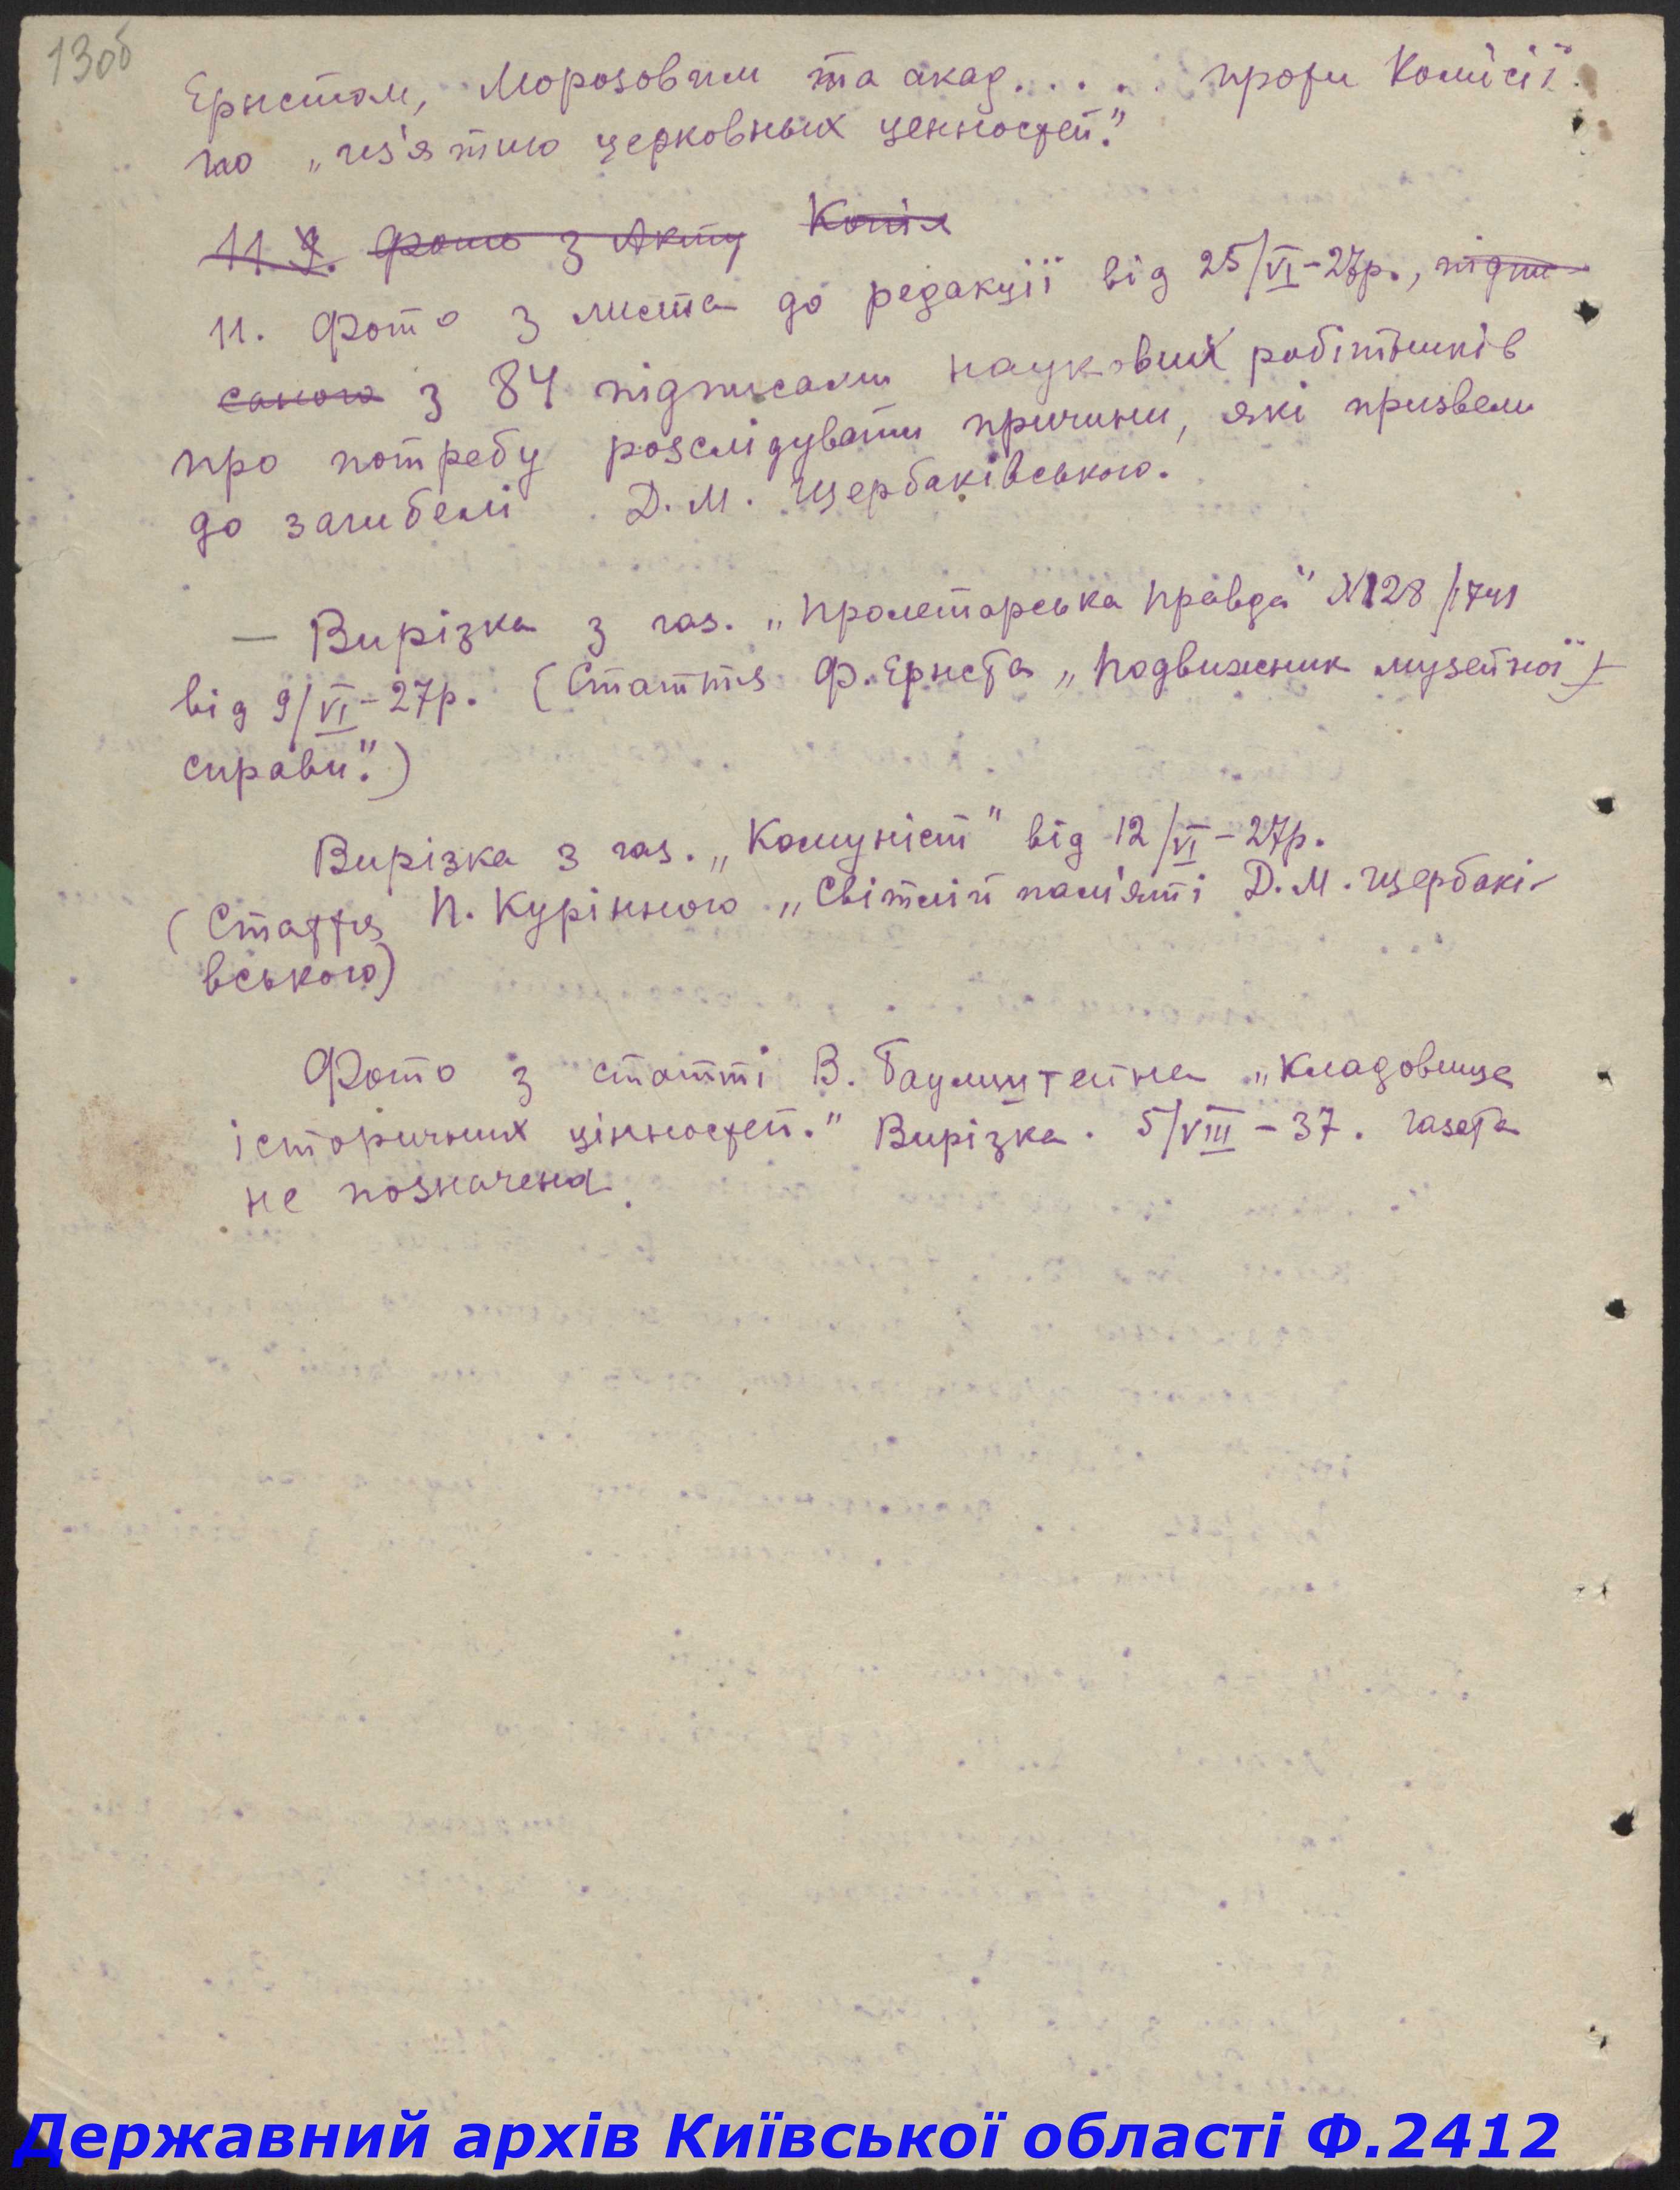 13об
Ернстом, Морозовим та акад. . . . . проти Комісії
по „из'ятию церковных ценностей."
11. 9. Фото з Акту Копія
11. Фото з листа до редакції від 25/VI-27р., підпи
саного з 84 підписами наукових робітників
про потребу розслідувати причини, які призвели
до загибелі Д.М. Щербаківського.
— Вирізка з газ. „Пролетарська Правда" №128/1741
від 9/VI-27р. (Стаття Ф. Ернста „Подвижник музейної
справи".)
Вирізка з газ. „Комуніст" від 12/VI-27р.
(Стаття П. Курінного „Світлій пам'яті Д.М. Щербакі-
вського)
Фото з статті В. Баумштейна „Кладовище
історичних цінностей." Вирізка. 5/VIII-37. газета
не позначена.
Державний архів Київської області Ф.2412